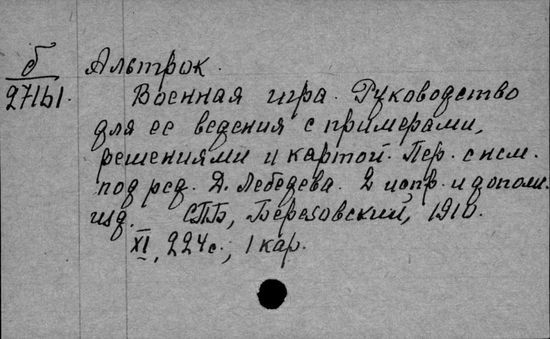 б
27161.
Альтрок.
Военная игра. Руководство
для ее ведения с примерами,
решениями и картой. Пер. с нем.
под ред. Д. Лебедева. 2 испр. и дополн.
изд. СПБ, Березовский, 1910.
XI, 224 с., 1 кар.